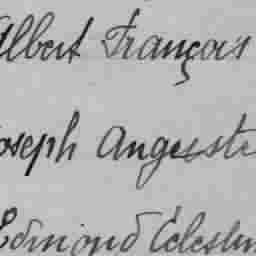 Albert François
Joseph Auguste
Edmond Célestin